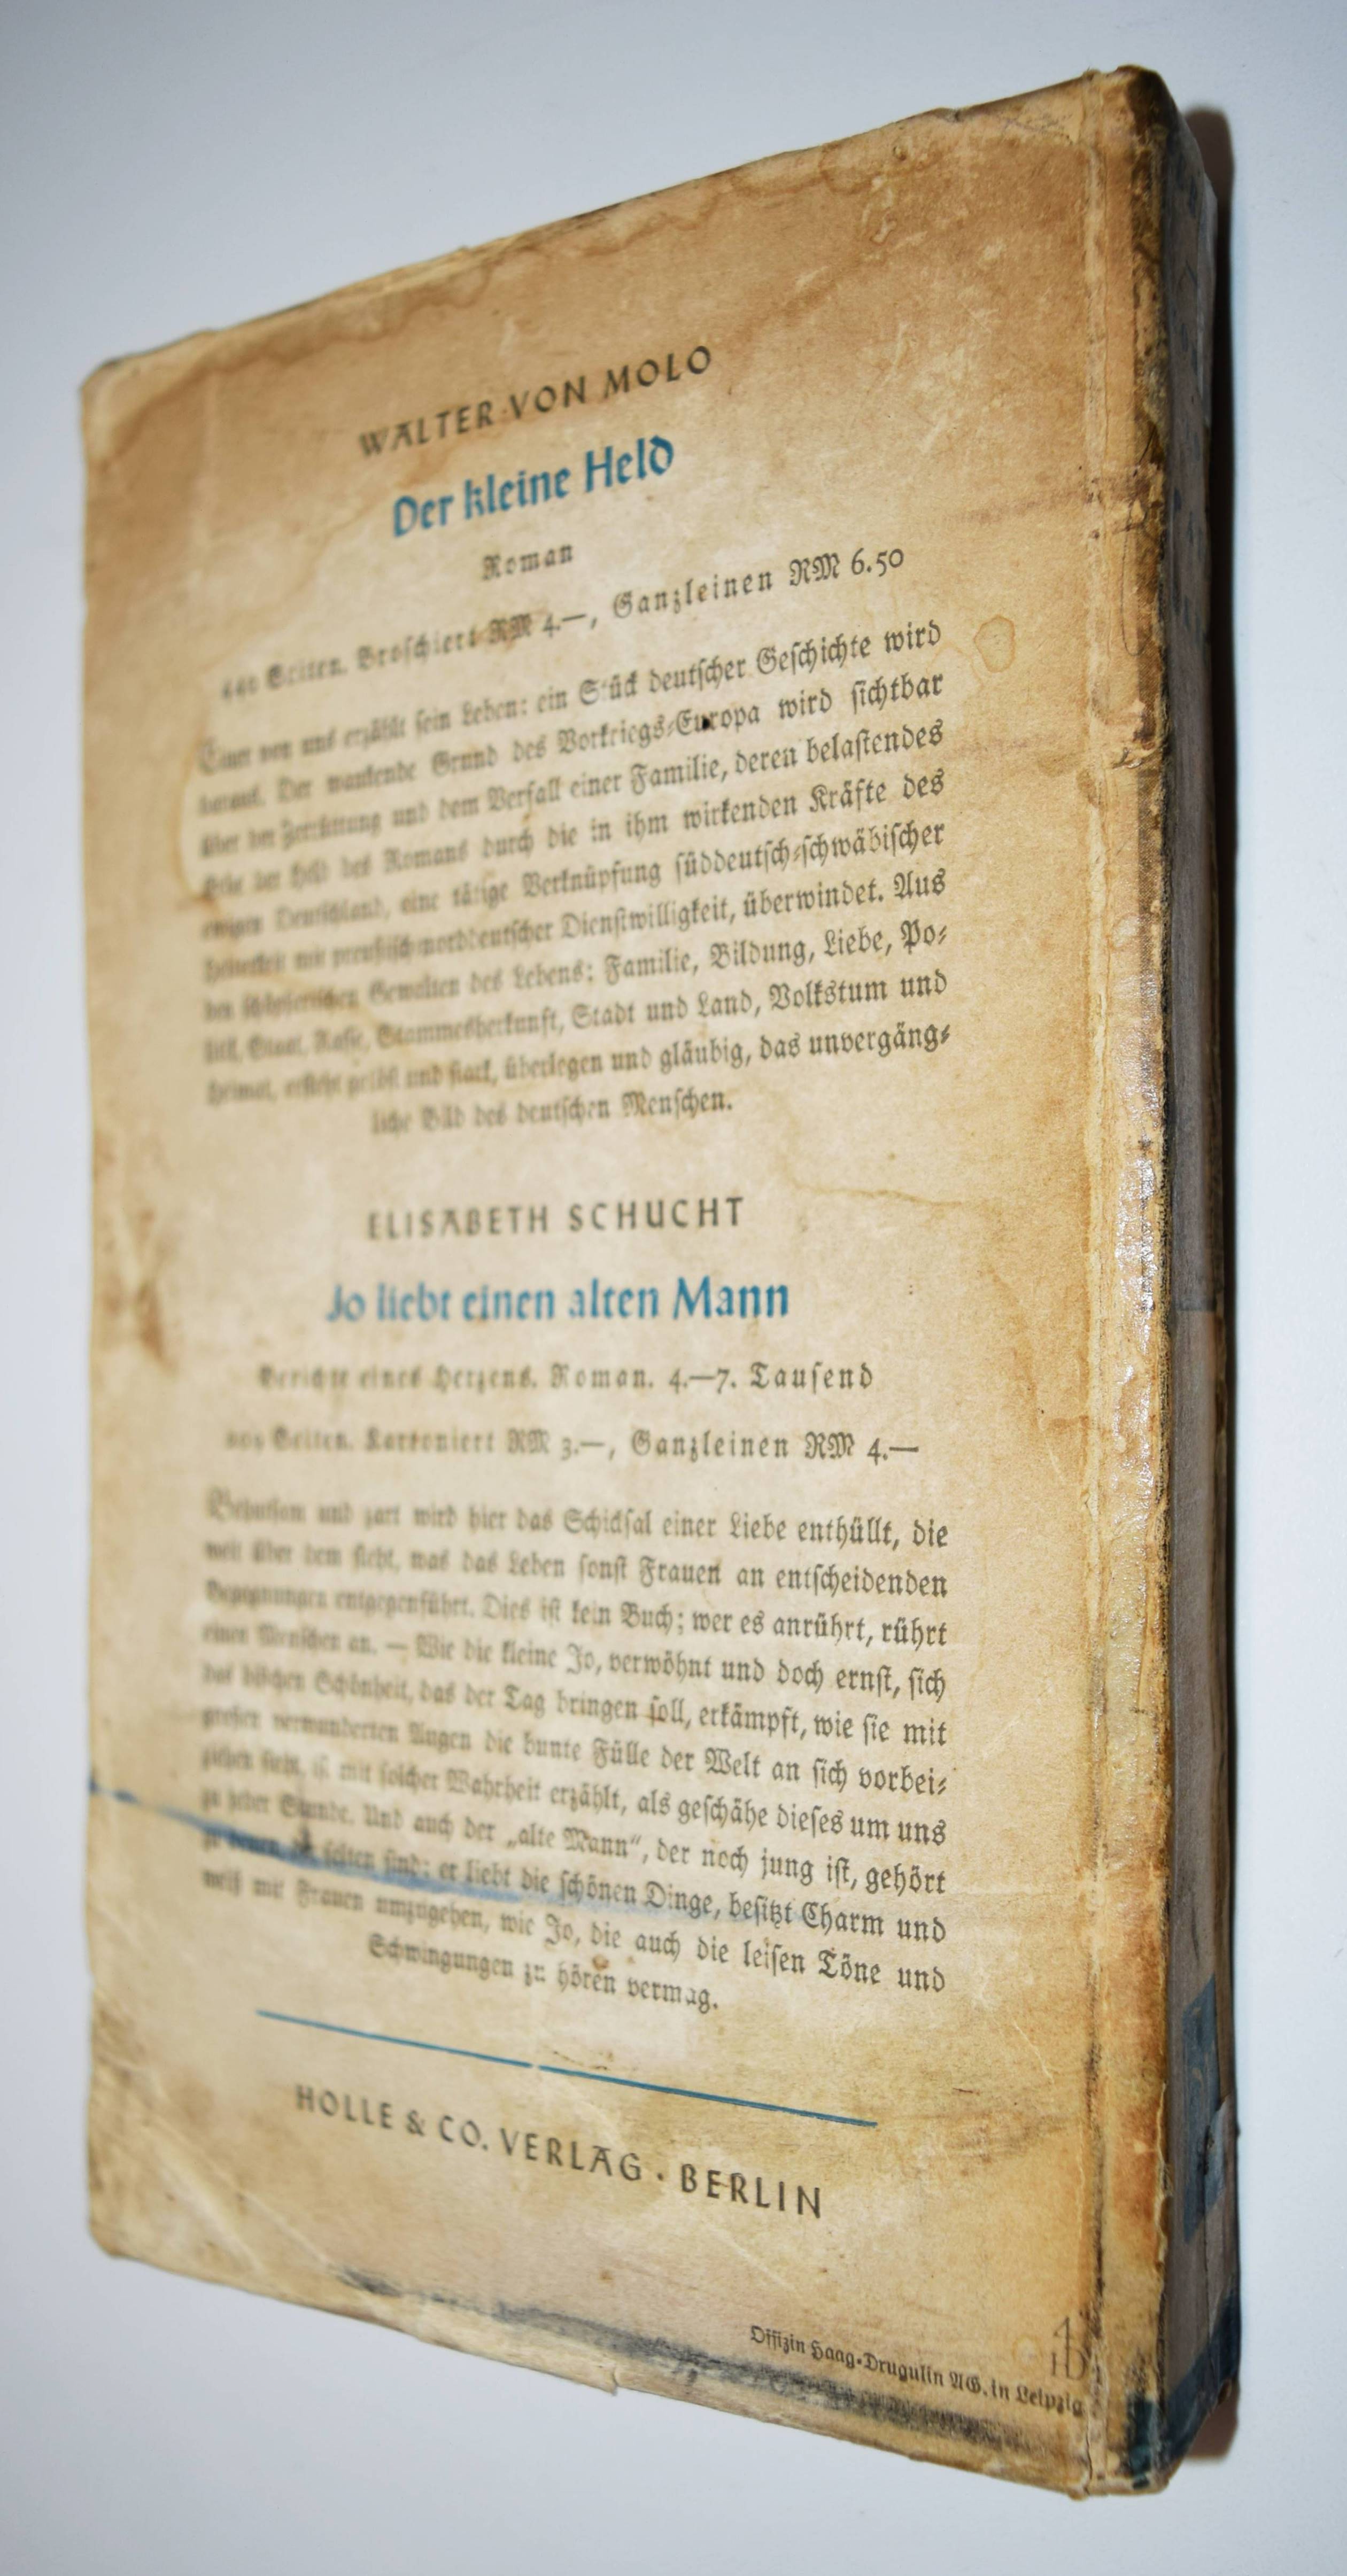 WALTER VON MOLO
Der kleine Held
Roman
Seiten. Broschiert RM 4.—, Ganzleinen RM 6.50
Einer von uns erzählt sein Leben: ein Stück deutscher Geschichte wird
daraus. Der wankende Grund des Vorkriegs-Europa wird sichtbar
über der Zerrüttung und dem Verfall einer Familie, deren belastendes
Erbe der Held des Romans durch die in ihm wirkenden Kräfte des
ewigen Deutschland, eine tätige Verknüpfung süddeutsch-schwäbischer
Heiterkeit mit preußisch-norddeutscher Dienstwilligkeit, überwindet. Aus
den schöpferischen Gewalten des Lebens: Familie, Bildung, Liebe, Po-
litik, Staat, Rasse, Stammesherkunft, Stadt und Land, Volkstum und
Heimat, ersteht und stark, überlegen und gläubig, das unvergäng-
liche Bild des deutschen Menschen.
ELISABETH SCHUCHT
Jo liebt einen alten Mann
Berichte eines Herzens. Roman. 4.—7. Tausend
Seiten. Kartoniert RM 3.—, Ganzleinen RM 4.—
Behutsam und zart wird hier das Schicksal einer Liebe enthüllt, die
weit über dem steht, was das Leben sonst Frauen an entscheidenden
Begegnungen entgegenführt. Dies ist kein Buch; wer es anrührt, rührt
einen Menschen an. — Wie die kleine Jo, verwöhnt und doch ernst, sich
das bißchen Schönheit, das der Tag bringen soll, erkämpft, wie sie mit
großen verwunderten Augen die bunte Fülle der Welt an sich vorbei-
ziehen sieht, ist mit solcher Wahrheit erzählt, als geschähe dieses um uns
zu jeder Stunde. Und auch der „alte Mann“, der noch jung ist, gehört
zu denen, die selten sind: er liebt die schönen Dinge, besitzt Charm und
weiß mit Frauen umzugehen, wie Jo, die auch die leisen Töne und
Schwingungen zu hören vermag.
HOLLE & CO. VERLAG · BERLIN
Offizin Haag-Drugulin AG. in Leipzig